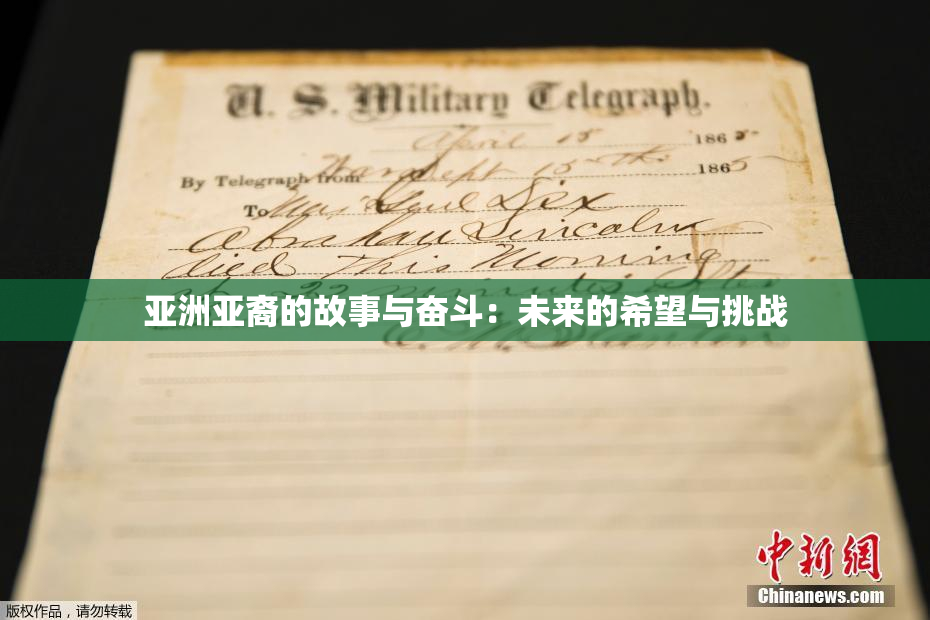 U. S. Military Telegraph.
April 15 1865
By Telegraph from War Dept 15th 1865
To Maj Genl Dix
Abraham Lincoln
died This Morning
at 22 minutes after
亚洲亚裔的故事与奋斗：未来的希望与挑战
E. M. Stanton
中新網
Chinanews.com
版权作品，请勿转载